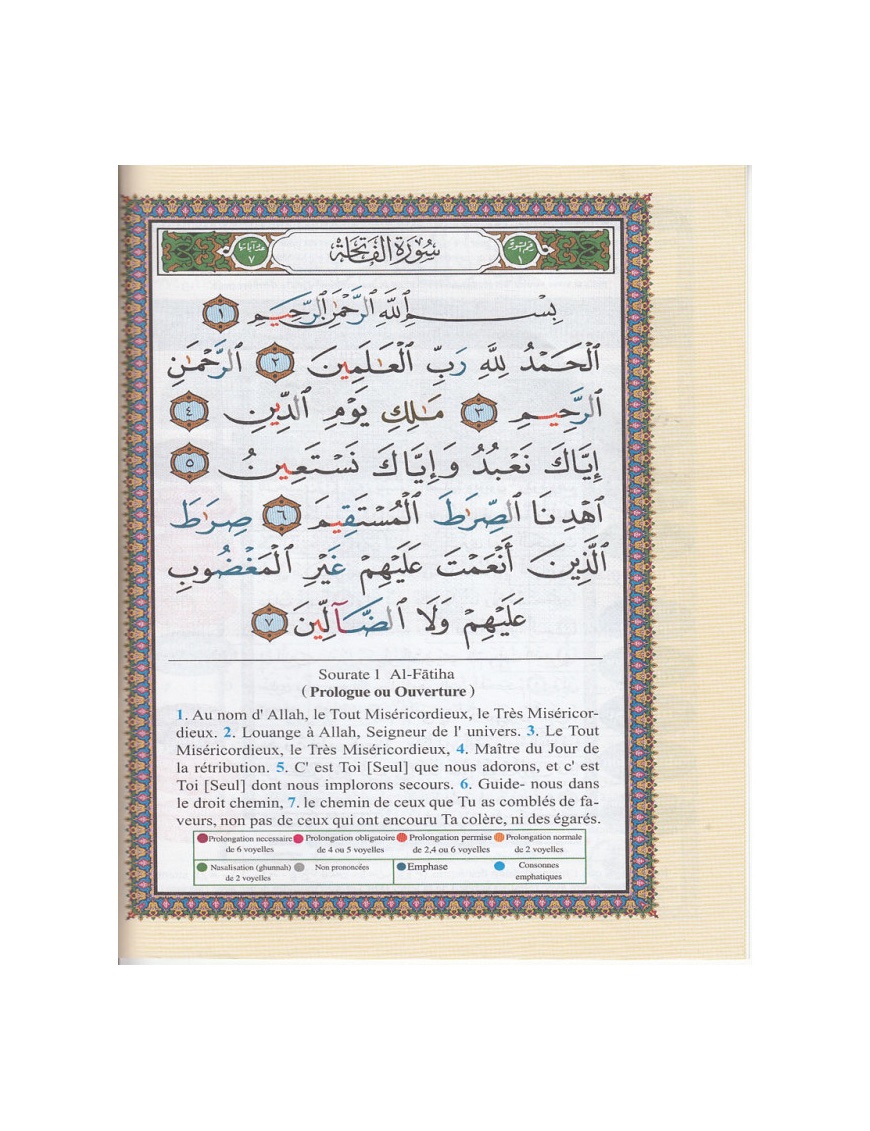 عدد آياتها ٧ سُورَةُ الفَاتِحَةِ رقم السورة ١
بِسْمِ ٱللَّهِ ٱلرَّحْمَٰنِ ٱلرَّحِيمِ ١
ٱلْحَمْدُ لِلَّهِ رَبِّ ٱلْعَٰلَمِينَ ٢ ٱلرَّحْمَٰنِ
ٱلرَّحِيمِ ٣ مَٰلِكِ يَوْمِ ٱلدِّينِ ٤
إِيَّاكَ نَعْبُدُ وَإِيَّاكَ نَسْتَعِينُ ٥
ٱهْدِنَا ٱلصِّرَٰطَ ٱلْمُسْتَقِيمَ ٦ صِرَٰطَ
ٱلَّذِينَ أَنْعَمْتَ عَلَيْهِمْ غَيْرِ ٱلْمَغْضُوبِ
عَلَيْهِمْ وَلَا ٱلضَّآلِّينَ ٧
Sourate 1 Al-Fātiha
( Prologue ou Ouverture )
1. Au nom d' Allah, le Tout Miséricordieux, le Très Miséricor-
dieux. 2. Louange à Allah, Seigneur de l' univers. 3. Le Tout
Miséricordieux, le Très Miséricordieux, 4. Maître du Jour de
la rétribution. 5. C' est Toi [Seul] que nous adorons, et c' est
Toi [Seul] dont nous implorons secours. 6. Guide- nous dans
le droit chemin, 7. le chemin de ceux que Tu as comblés de fa-
veurs, non pas de ceux qui ont encouru Ta colère, ni des égarés.
Prolongation necessaire Prolongation obligatoire Prolongation permise Prolongation normale
de 6 voyelles de 4 ou 5 voyelles de 2,4 ou 6 voyelles de 2 voyelles
Nasalisation (ghunnah) Non prononcées Emphase Consonnes
de 2 voyelles emphatiques